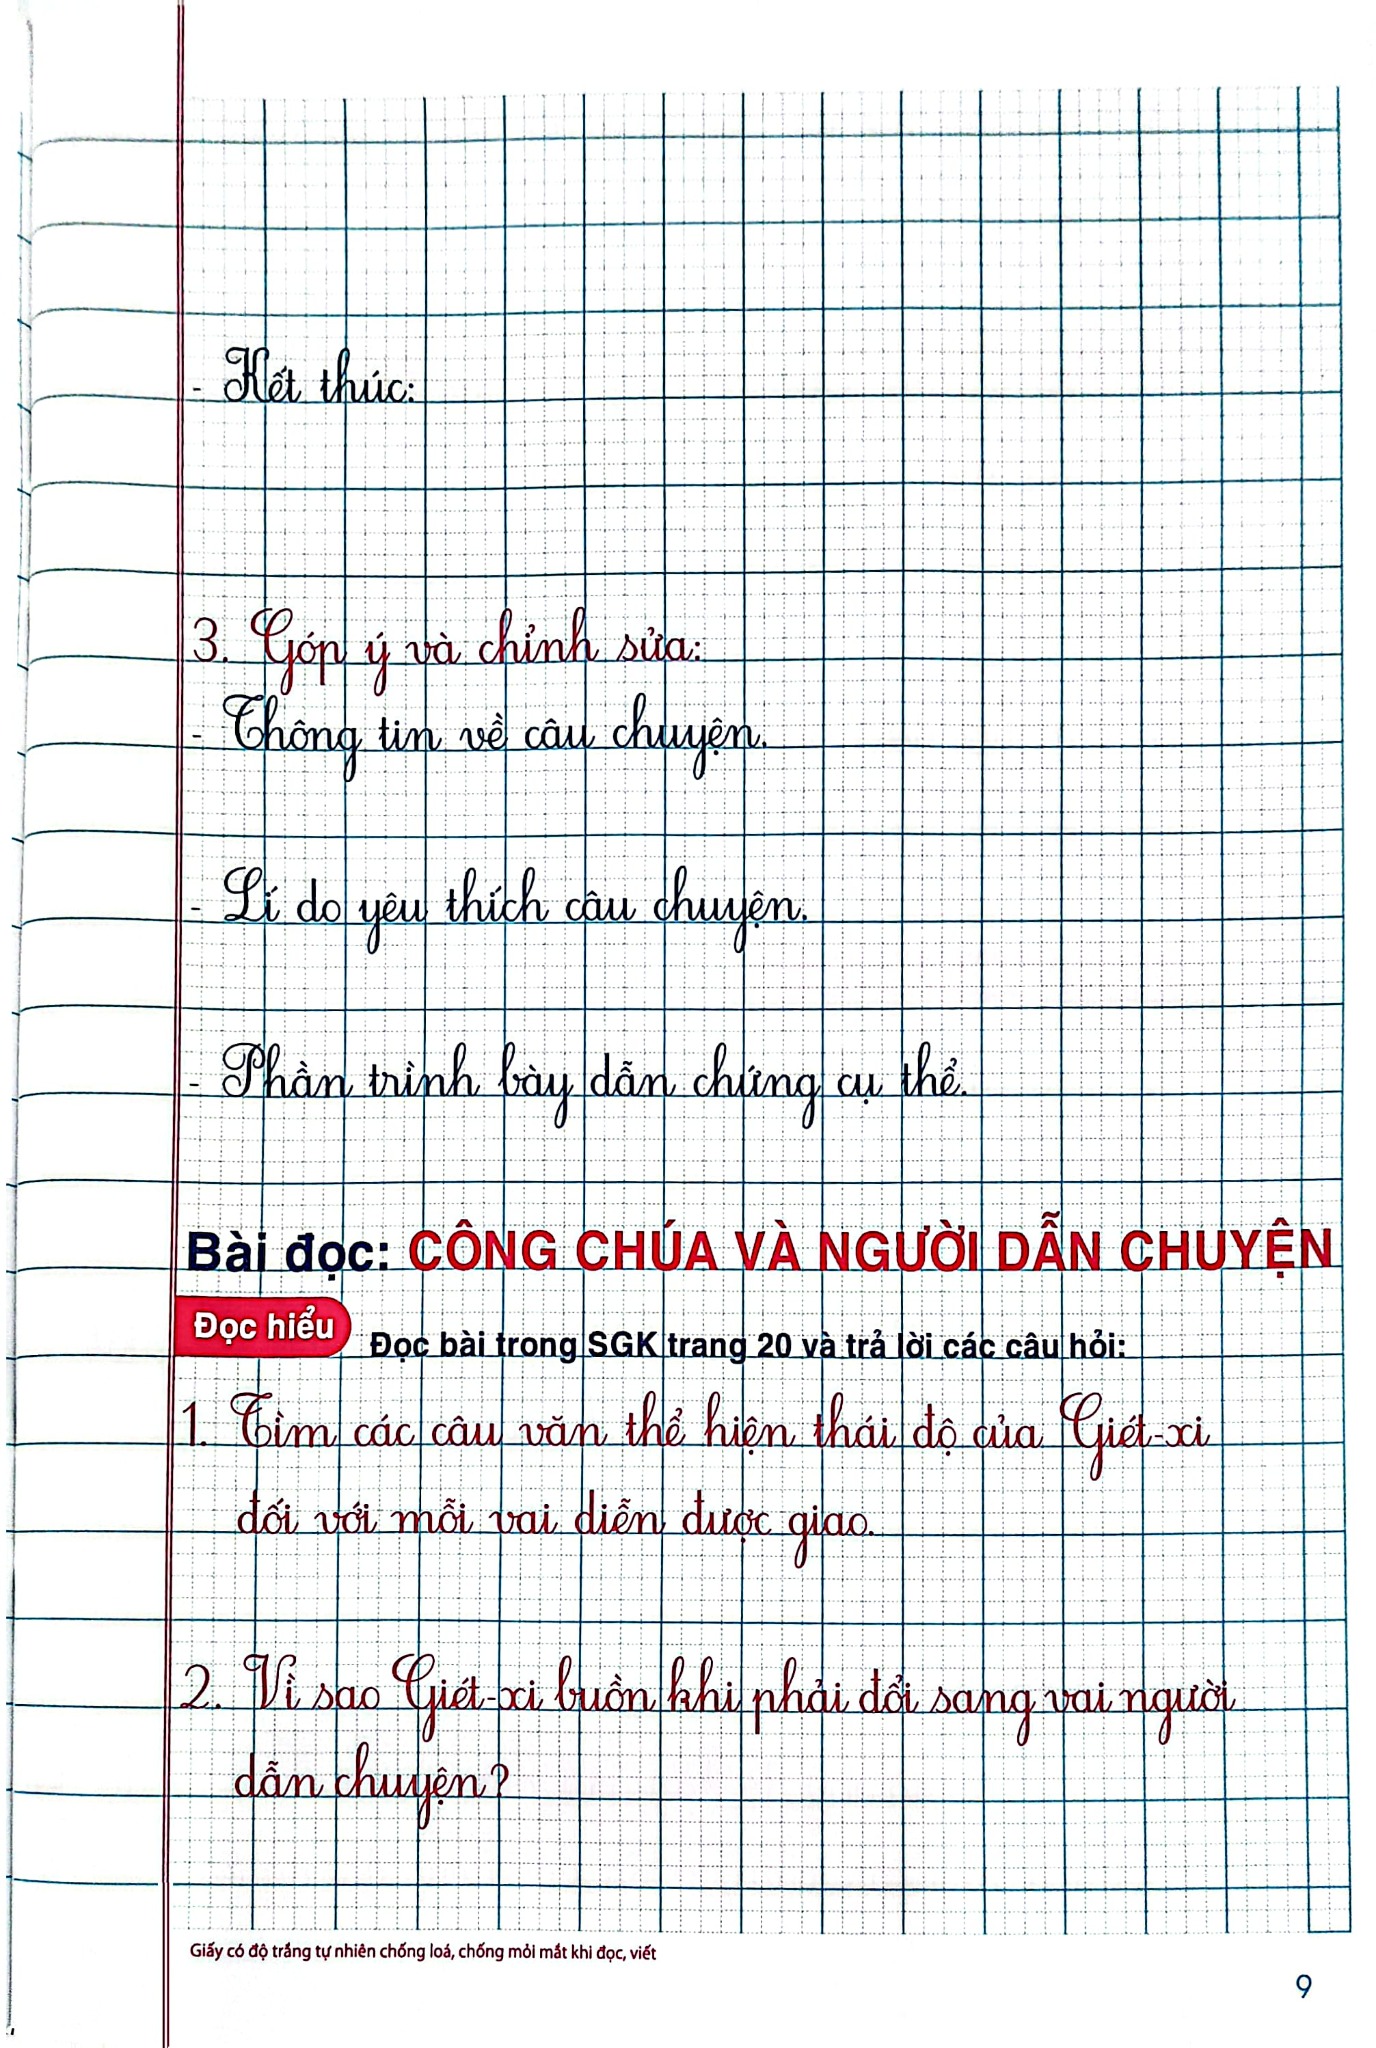 - Kết thúc:
3. Góp ý và chỉnh sửa:
- Thông tin về câu chuyện.
- Lí do yêu thích câu chuyện.
- Phần trình bày dẫn chứng cụ thể.
Bài đọc: CÔNG CHÚA VÀ NGƯỜI DẪN CHUYỆN
Đọc hiểu Đọc bài trong SGK trang 20 và trả lời các câu hỏi:
1. Tìm các câu văn thể hiện thái độ của Giét-xi
đối với mỗi vai diễn được giao.
2. Vì sao Giét-xi buồn khi phải đổi sang vai người
dẫn chuyện?
Giấy có độ trắng tự nhiên chống loá, chống mỏi mắt khi đọc, viết
9